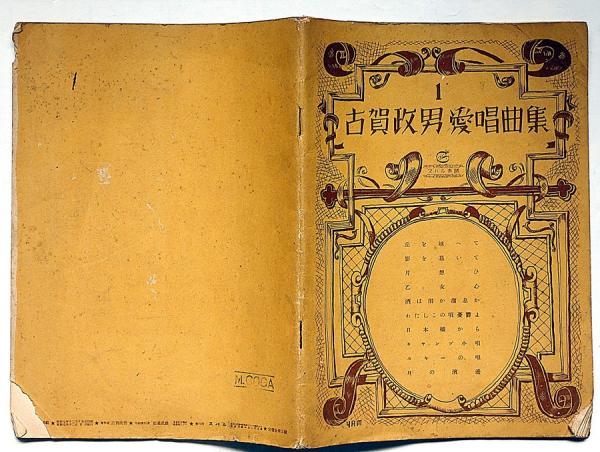 1
古賀政男愛唱曲集
スバル楽譜
丘を越へて
影を慕いて
片想ひ
乙女心
酒は泪か溜息か
わたしこの頃憂鬱よ
日本橋から
キャンプ小唄
スキーの唄
月の浜辺
M.COGA
スバル